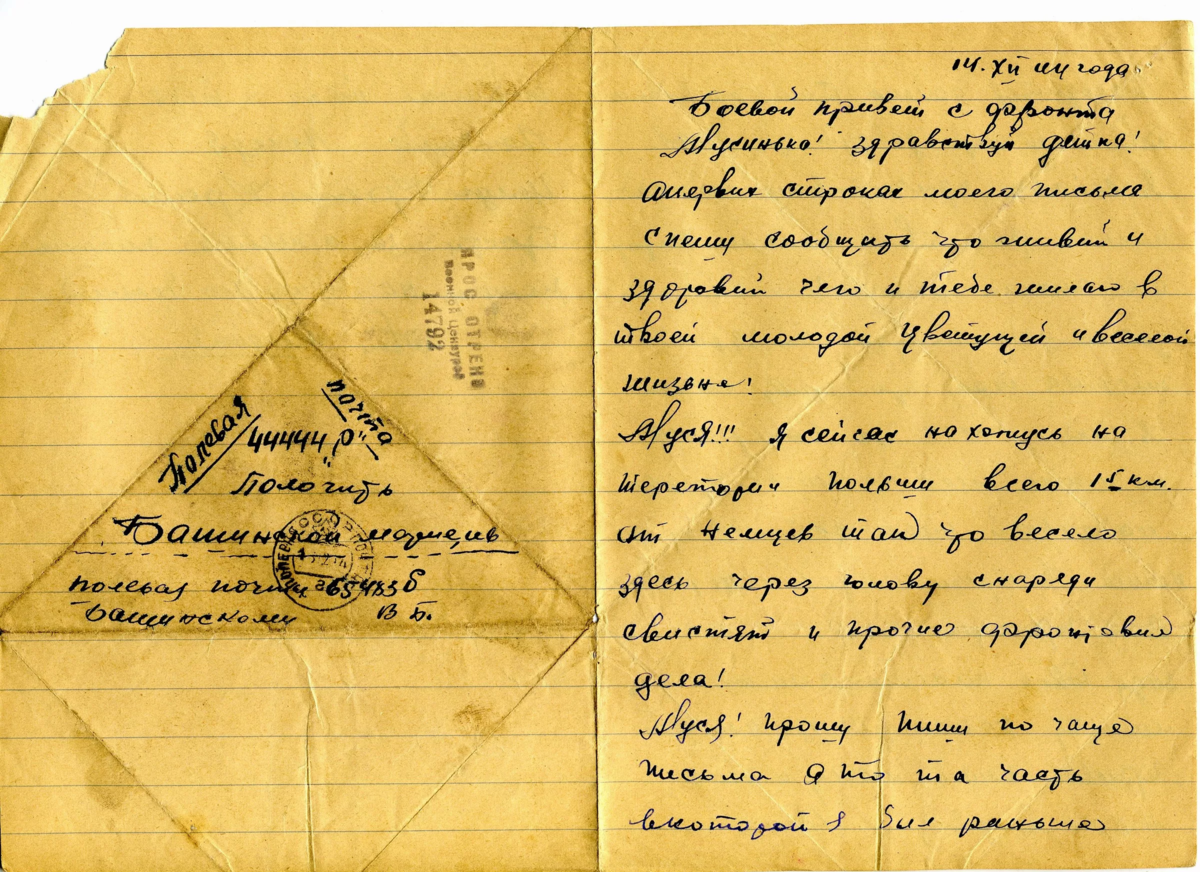 ПРОСМОТРЕНО
Военной Цензурой
14792
Полевая
почта
44444 „Р"
Полочить
Башинской
полевая почта
Башинскому В Б.
14. XII 44 года
Боевой привет с фронта
Мусинька! здравствуй детка!
Впервих строках моего письма
спешу сообщить что живий и
здоровий чего и тебе желаю в
твоей молодой цветущей и веселой
жизьне!
Муся!!! Я сейчас нахожусь на
теретории Польши всего 15 км.
от немцев так что весело
здесь через голову снаряди
свистят и прочие фронтовие
дела!
Муся! прошу пиши по чаще
письма а то та часть
вкоторой я бил раньше